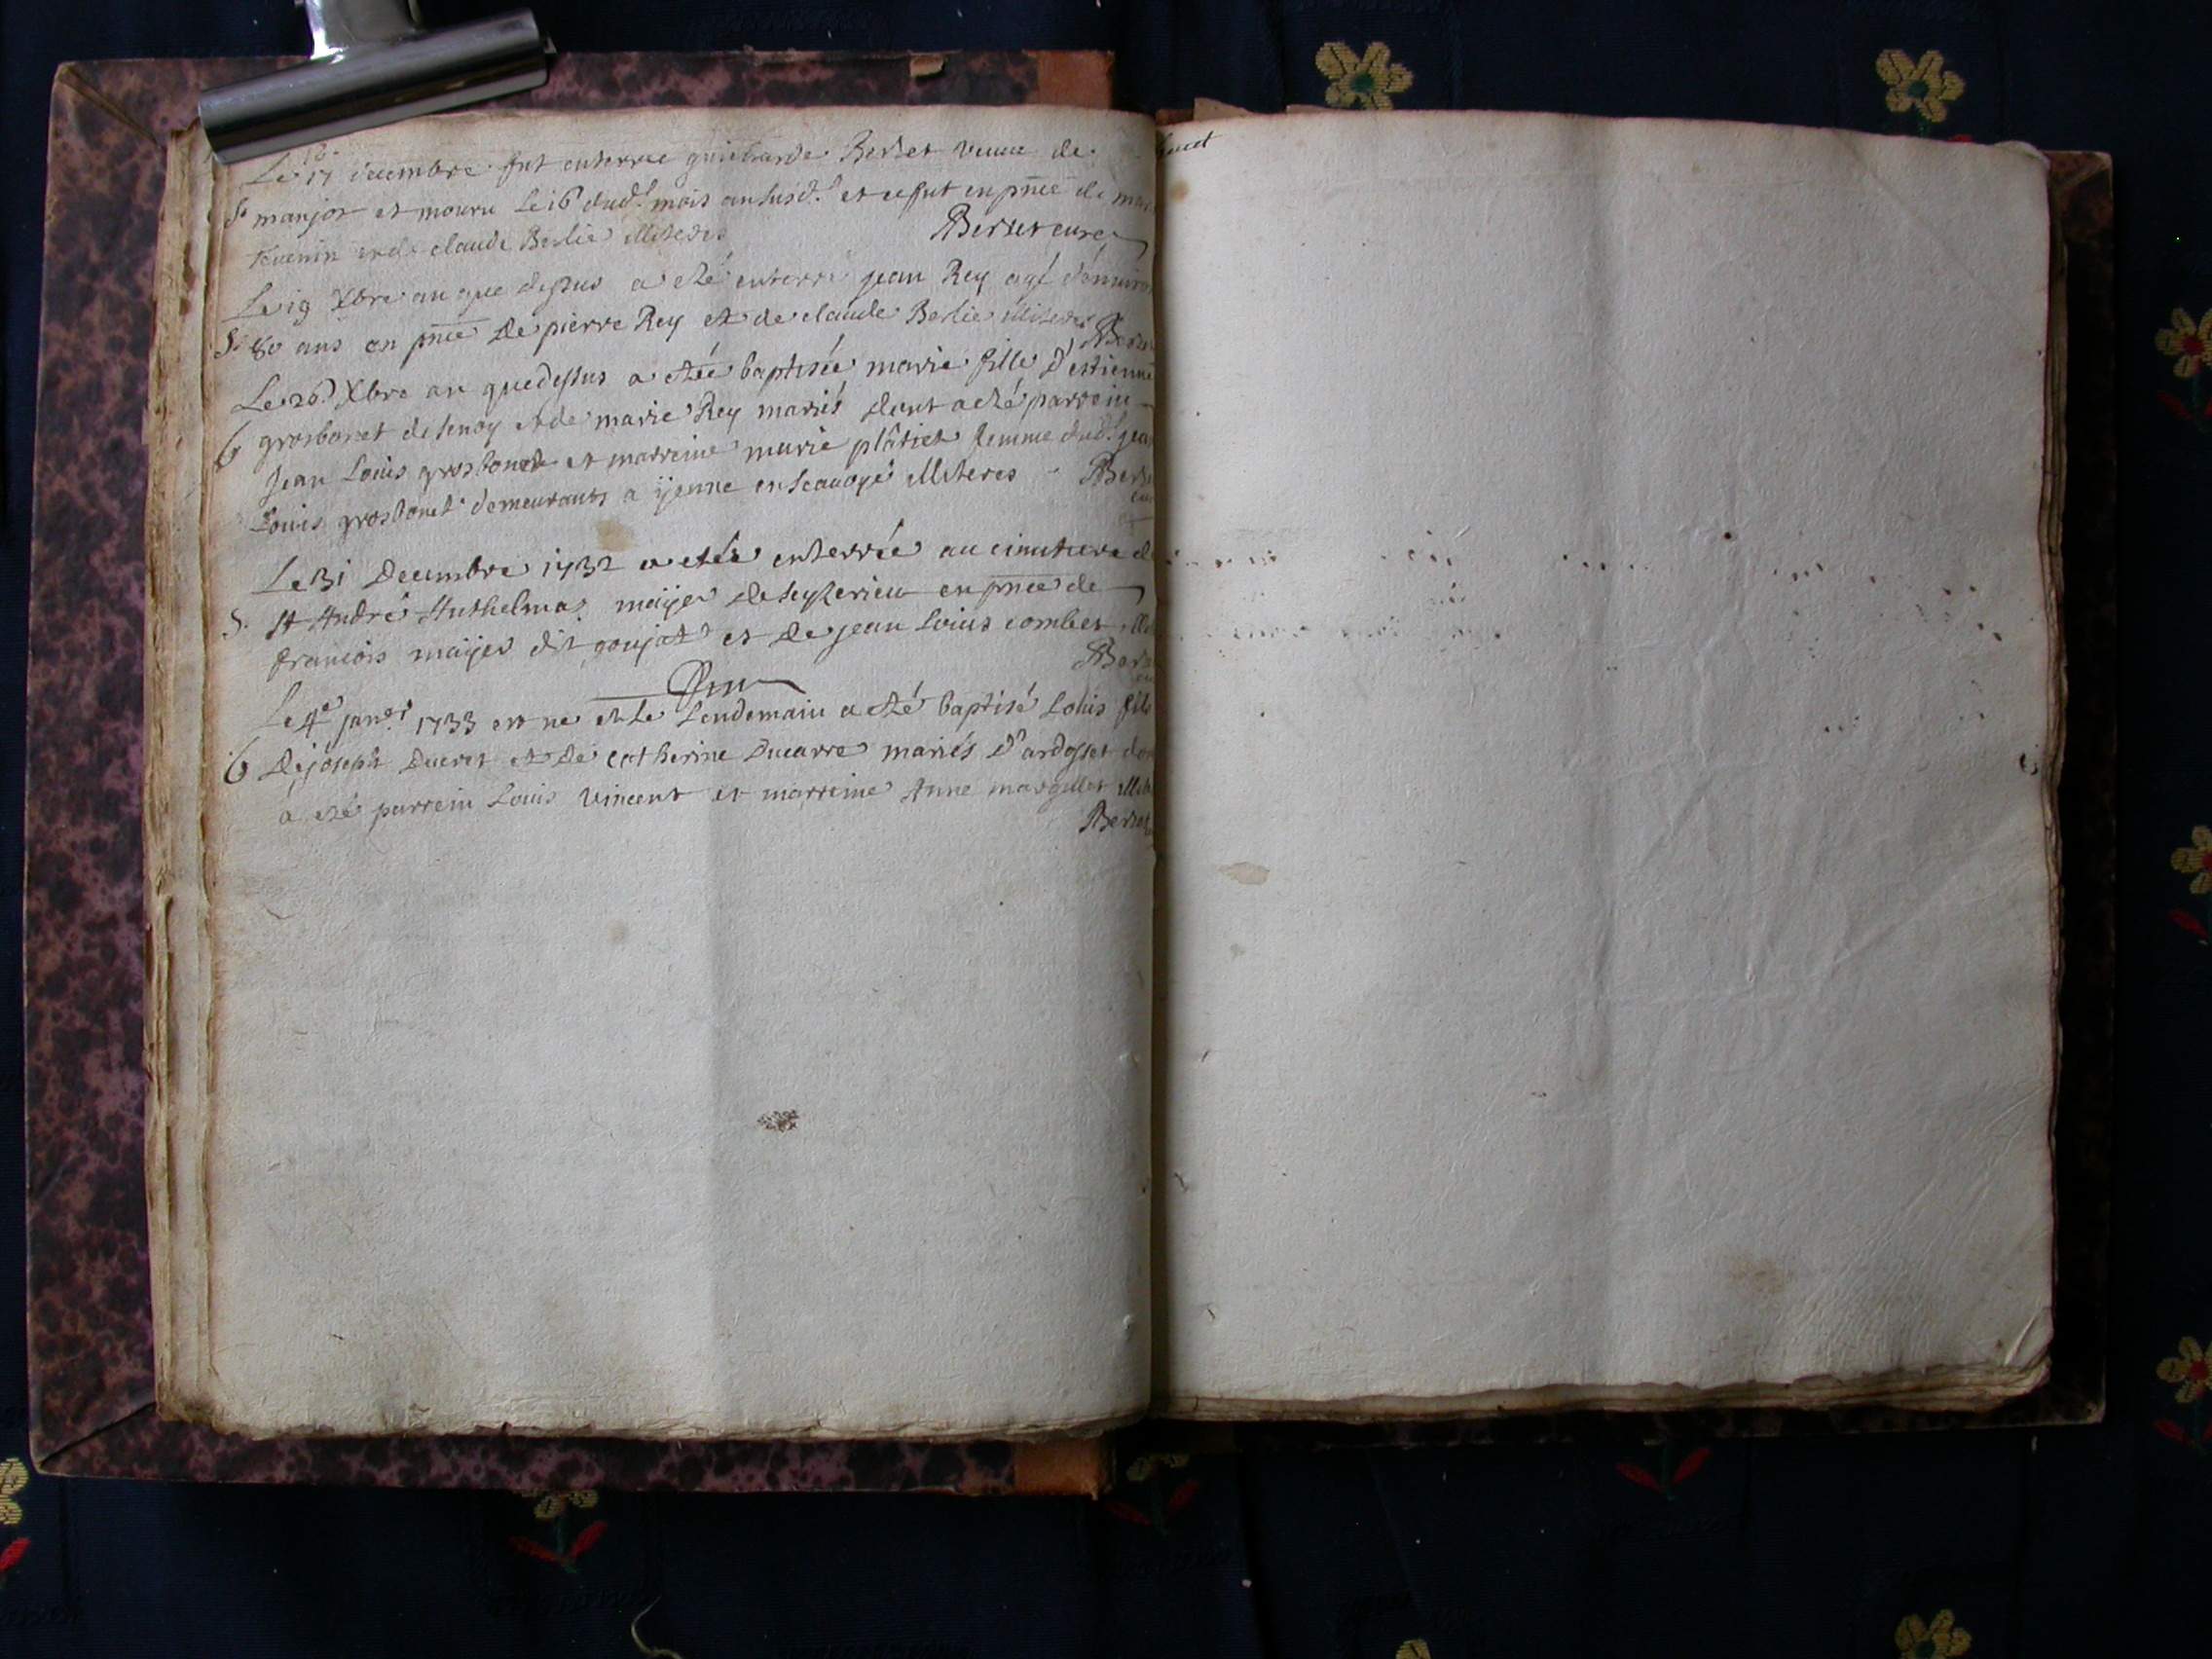 Le 17 decembre fut enterree guicharde Bertet veuve de
S. manjot et mouru le 16 dud.t mois an susd.t et ce fut en pnce de
et de claude Berlié illiteres
Bertet curé
Le 19 Xbre an que dessus a eté enterré jean Rey agé d'environ
S. 80 ans en pnce de pierre Rey et de claude Berlié illiteres
Le 26 Xbre an que dessus a etée baptisée marie fille d'estienne
b grosbonet de et de marie Rey mariés dont a eté parrein
Jean Louis grosbonet et marreine marie plâtiet femme dud.t jean
Louis grosbonet demeurants a yenne en Scauoye illiteres
Le 31 Decembre 1732 a etée enterrée au cimitiere de
S. St André Anthelma maijer de Seyzerieu en pnce de
francois maijer dit goujat et de jean Louis combet
Le 4e janv.r 1733 est ne et le Lendemain a eté baptisé Louis fils
b De joseph Ducret et de catherine Ducarre mariés d'ardosset
a eté parrein Louis Vincent et marreine Anne